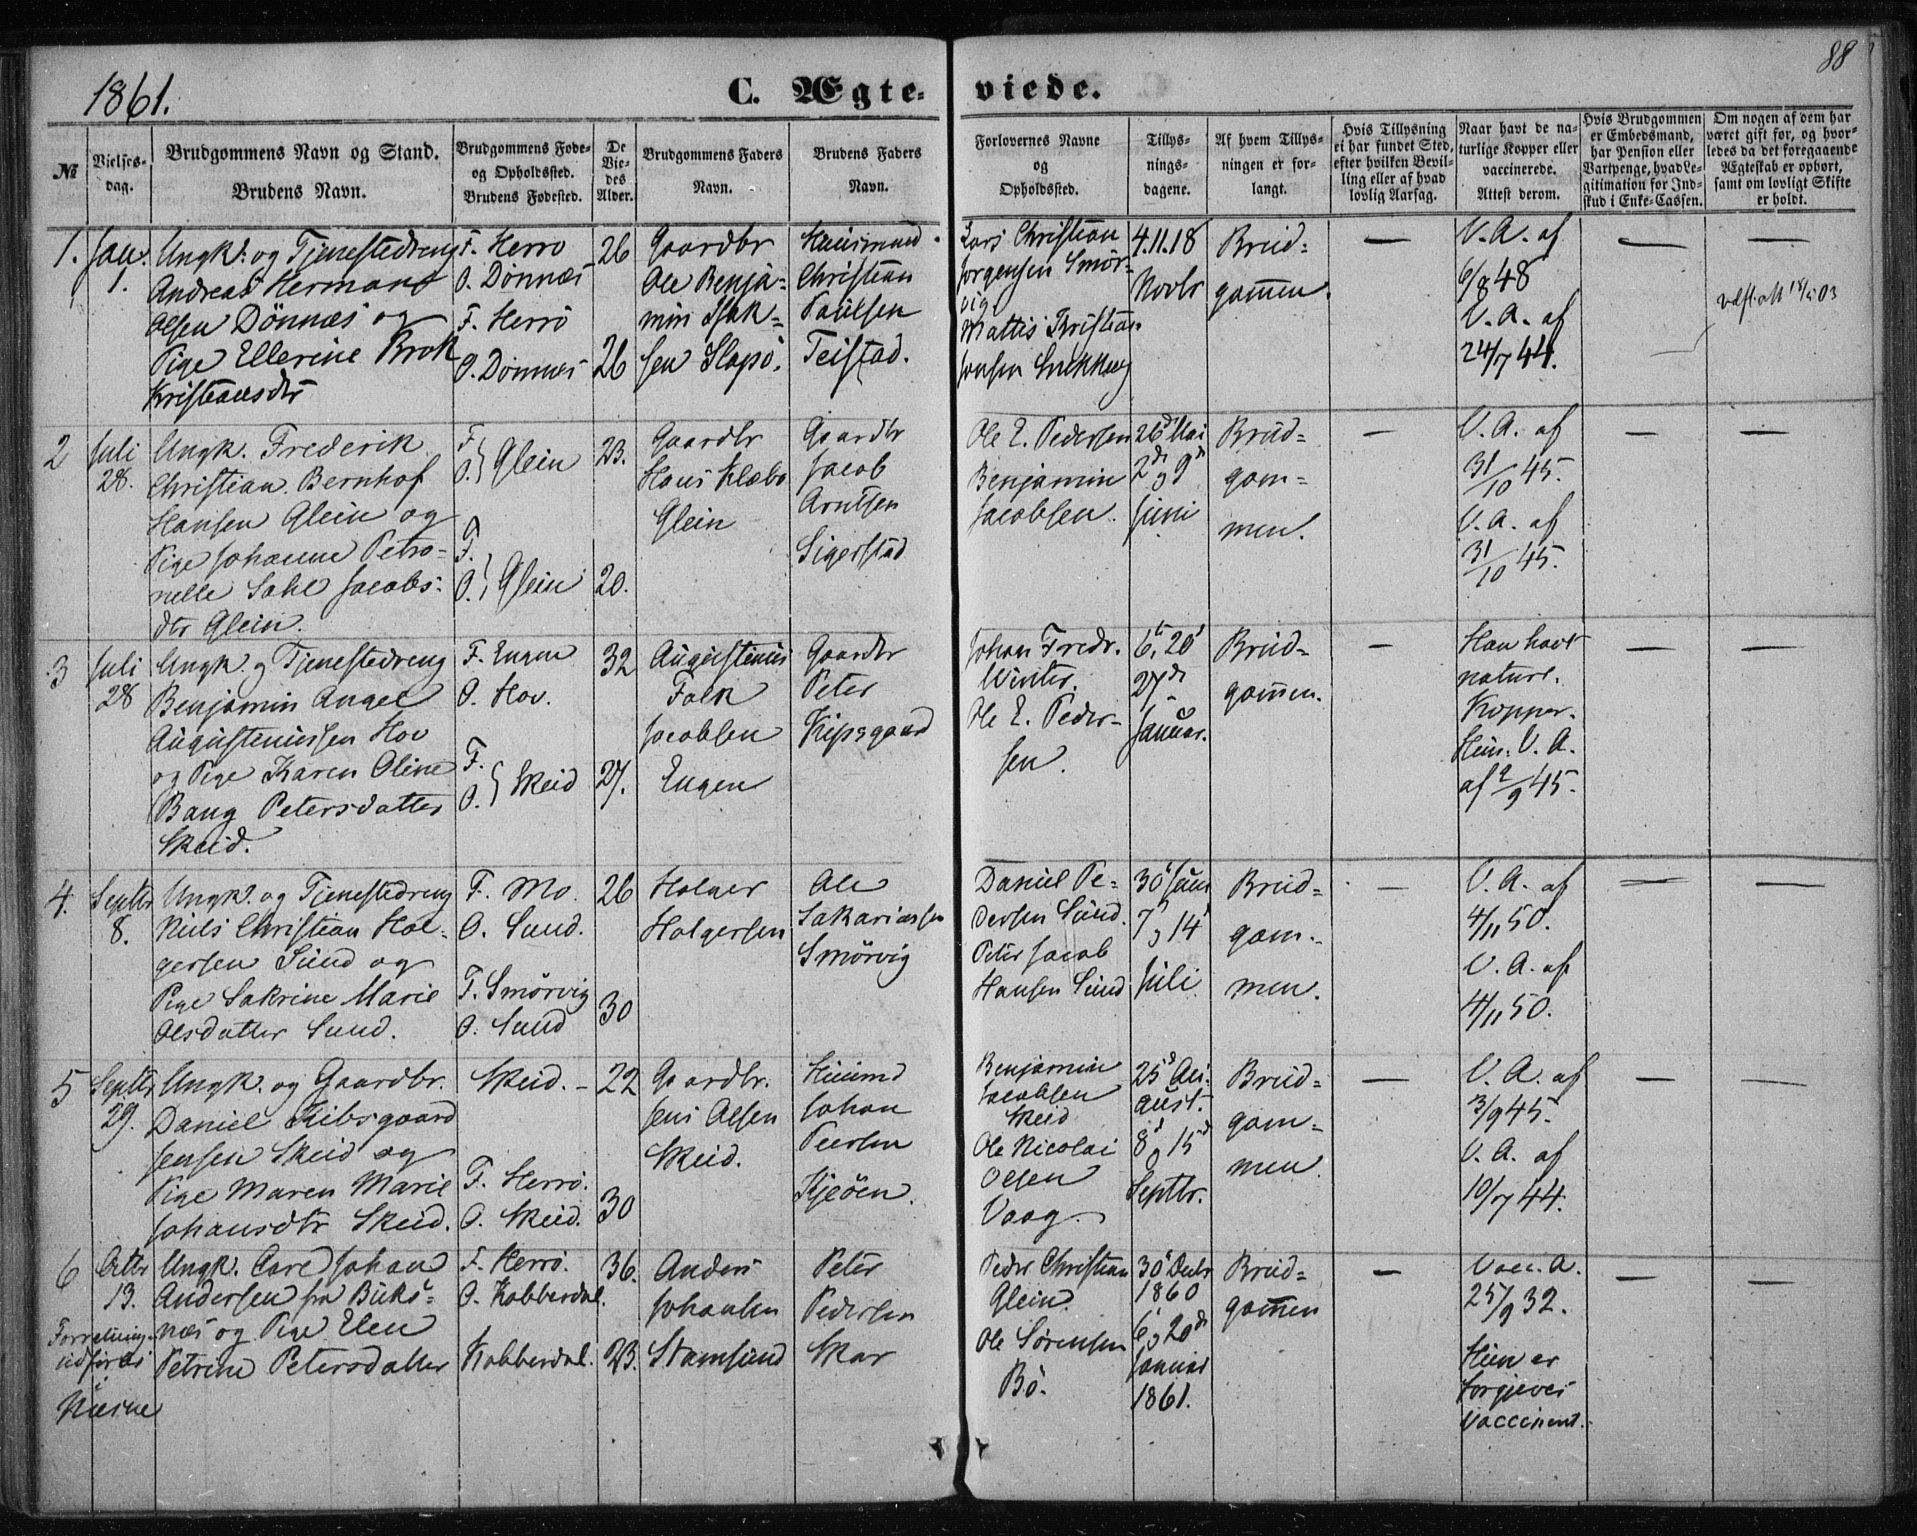 1861.
C. Ægte-
viede.
88
№
Vielses-
dag.
Brudgommens Navn og Stand.
Brudens Navn.
Brudgommens Føde-
og Opholdssted.
Brudens Fødested.
De
Vie-
des
Alder.
Brudgommens Faders
Navn.
Brudens Faders
Navn.
Forlovernes Navne
og
Opholdssted.
Tillys-
nings-
dagene.
Af hvem Tillys-
ningen er for-
langt.
Hvis Tillysning
ei har fundet Sted,
efter hvilken Bevil-
ling eller af hvad
lovlig Aarsag.
Naar havt de na-
turlige Kopper eller
vaccinerede.
Attest derom.
Hvis Brudgommen
er Embedsmand,
har Pension eller
Vartpenge, hvad Le-
gitimation for Ind-
skud i Enke-Cassen.
Om nogen af dem har
været gift før, og hvor-
ledes da det foregaaende
Ægteskab er ophørt,
samt om lovligt Skifte
er holdt.
1.
Jan.
1.
Ungk. og Tjenestedreng
Andreas Hermann
Olsen Dönnæs og
Pige Ellerine Brok
Kristiansdtr
F. Herrö
O. Dönnæs
F. Herrö
O. Dönnæs
26
26
Gaardbr
Ole Benja-
min Isak-
sen Slapö.
Huusmand
Christian
Paulsen
Teistad.
Lars Christian
Jörgensen Smör-
vig
Mattis Kristian
Jensen
4.11.18
Novbr
Brud-
gommen.
—
V. A. af
6/8 48
V. A. af
24/7 44.
—
—
18/5 03
2
Juli
28.
Ungk. Frederik
Christian Bernhof
Hansen Glein og
Pige Johanne Petro-
nelle Sahl Jacobs-
dtr Glein.
F.
O. } Glein
F.
O. } Glein
23.
20.
Gaardbr
Hans Klæbo
Glein
Gaardbr
Jacob
Arntsen
Sigerstad
Ole E. Pedersen
Benjamin
Jacobsen.
26d Mai
2d og 9d
Juni
Brud-
gom-
men.
—
V. A. af
31/10 45.
V. A. af
31/10 45.
—
—
3
Juli
28
Ungk. og Tjenestedreng
Benjamin Angel
Augustinussen Hov
og Pige Karen Oline
Bang Petersdatter
Skeid.
F. Engen
O. Hov.
F.
O. } Skeid
32
27.
Augustinus
Falk
Jacobsen
Engen
Gaardbr
Peter
Kipsgaard
Johan Fredr.
Winter.
Ole E. Peder-
sen.
6t, 20d
27d
Januar.
Brud-
gommen.
—
Han havt
naturl.
Kopper.
Hun. V. A.
af 2/9 45.
—
—
4.
Septbr
8.
Ungk. og Tjenestedreng
Niels Christian Hol-
gersen Sund og
Pige Sakrine Marie
Olsdatter Sund.
F. Mo.
O. Sund.
F. Smörvig
O. Sund
26
30
Holger
Holgersen
Ole
Sakariassen
Smörvig
Daniel Pe-
dersen Sund.
Peter Jacob
Hansen Sund
30d Juni
7d og 14d
Juli
Brud-
gom-
men.
—
V. A. af
4/11 50.
V. A. af
4/11 50.
—
—
5
Septbr
29.
Ungk. og Gaardbr.
Daniel Kibsgaard
Jensen Skeid og
Pige Maren Marie
Johansdtr Skeid.
Skeid.
F. Herrö.
O. Skeid.
22
30
Gaardbr.
Jens Olsen
Skeid.
Huusmd
Johan
Peersen
Kjeöen.
Benjamin
Jacobsen
Skeid
Ole Nicolai
Olsen
Vaag.
25d Au-
gust.
8d og 15d
Septbr.
Brud-
gom-
men.
—
V. A. af
3/9 45.
V. A. af
10/7 44.
—
—
6
Octbr
13.
Forretning.
udført i
Næsne
Ungk. Carl Johan
Andersen fra Buks-
næs og Pige Elen
Petrine Petersdatter
F. Herrö.
O. Kobberdal.
Kobberdal.
36.
23.
Anders
Johansen
Stamsund
Peter
Pedersen
Skar
Peder Christian
Glein.
Ole Sörensen
Bö.
30d Decbr
1860
6t og 20d
Januar
1861.
Brud-
gommen
—
Vacc. A.
25/9 32.
Hun er
forgjeves
vaccineret.
—
—